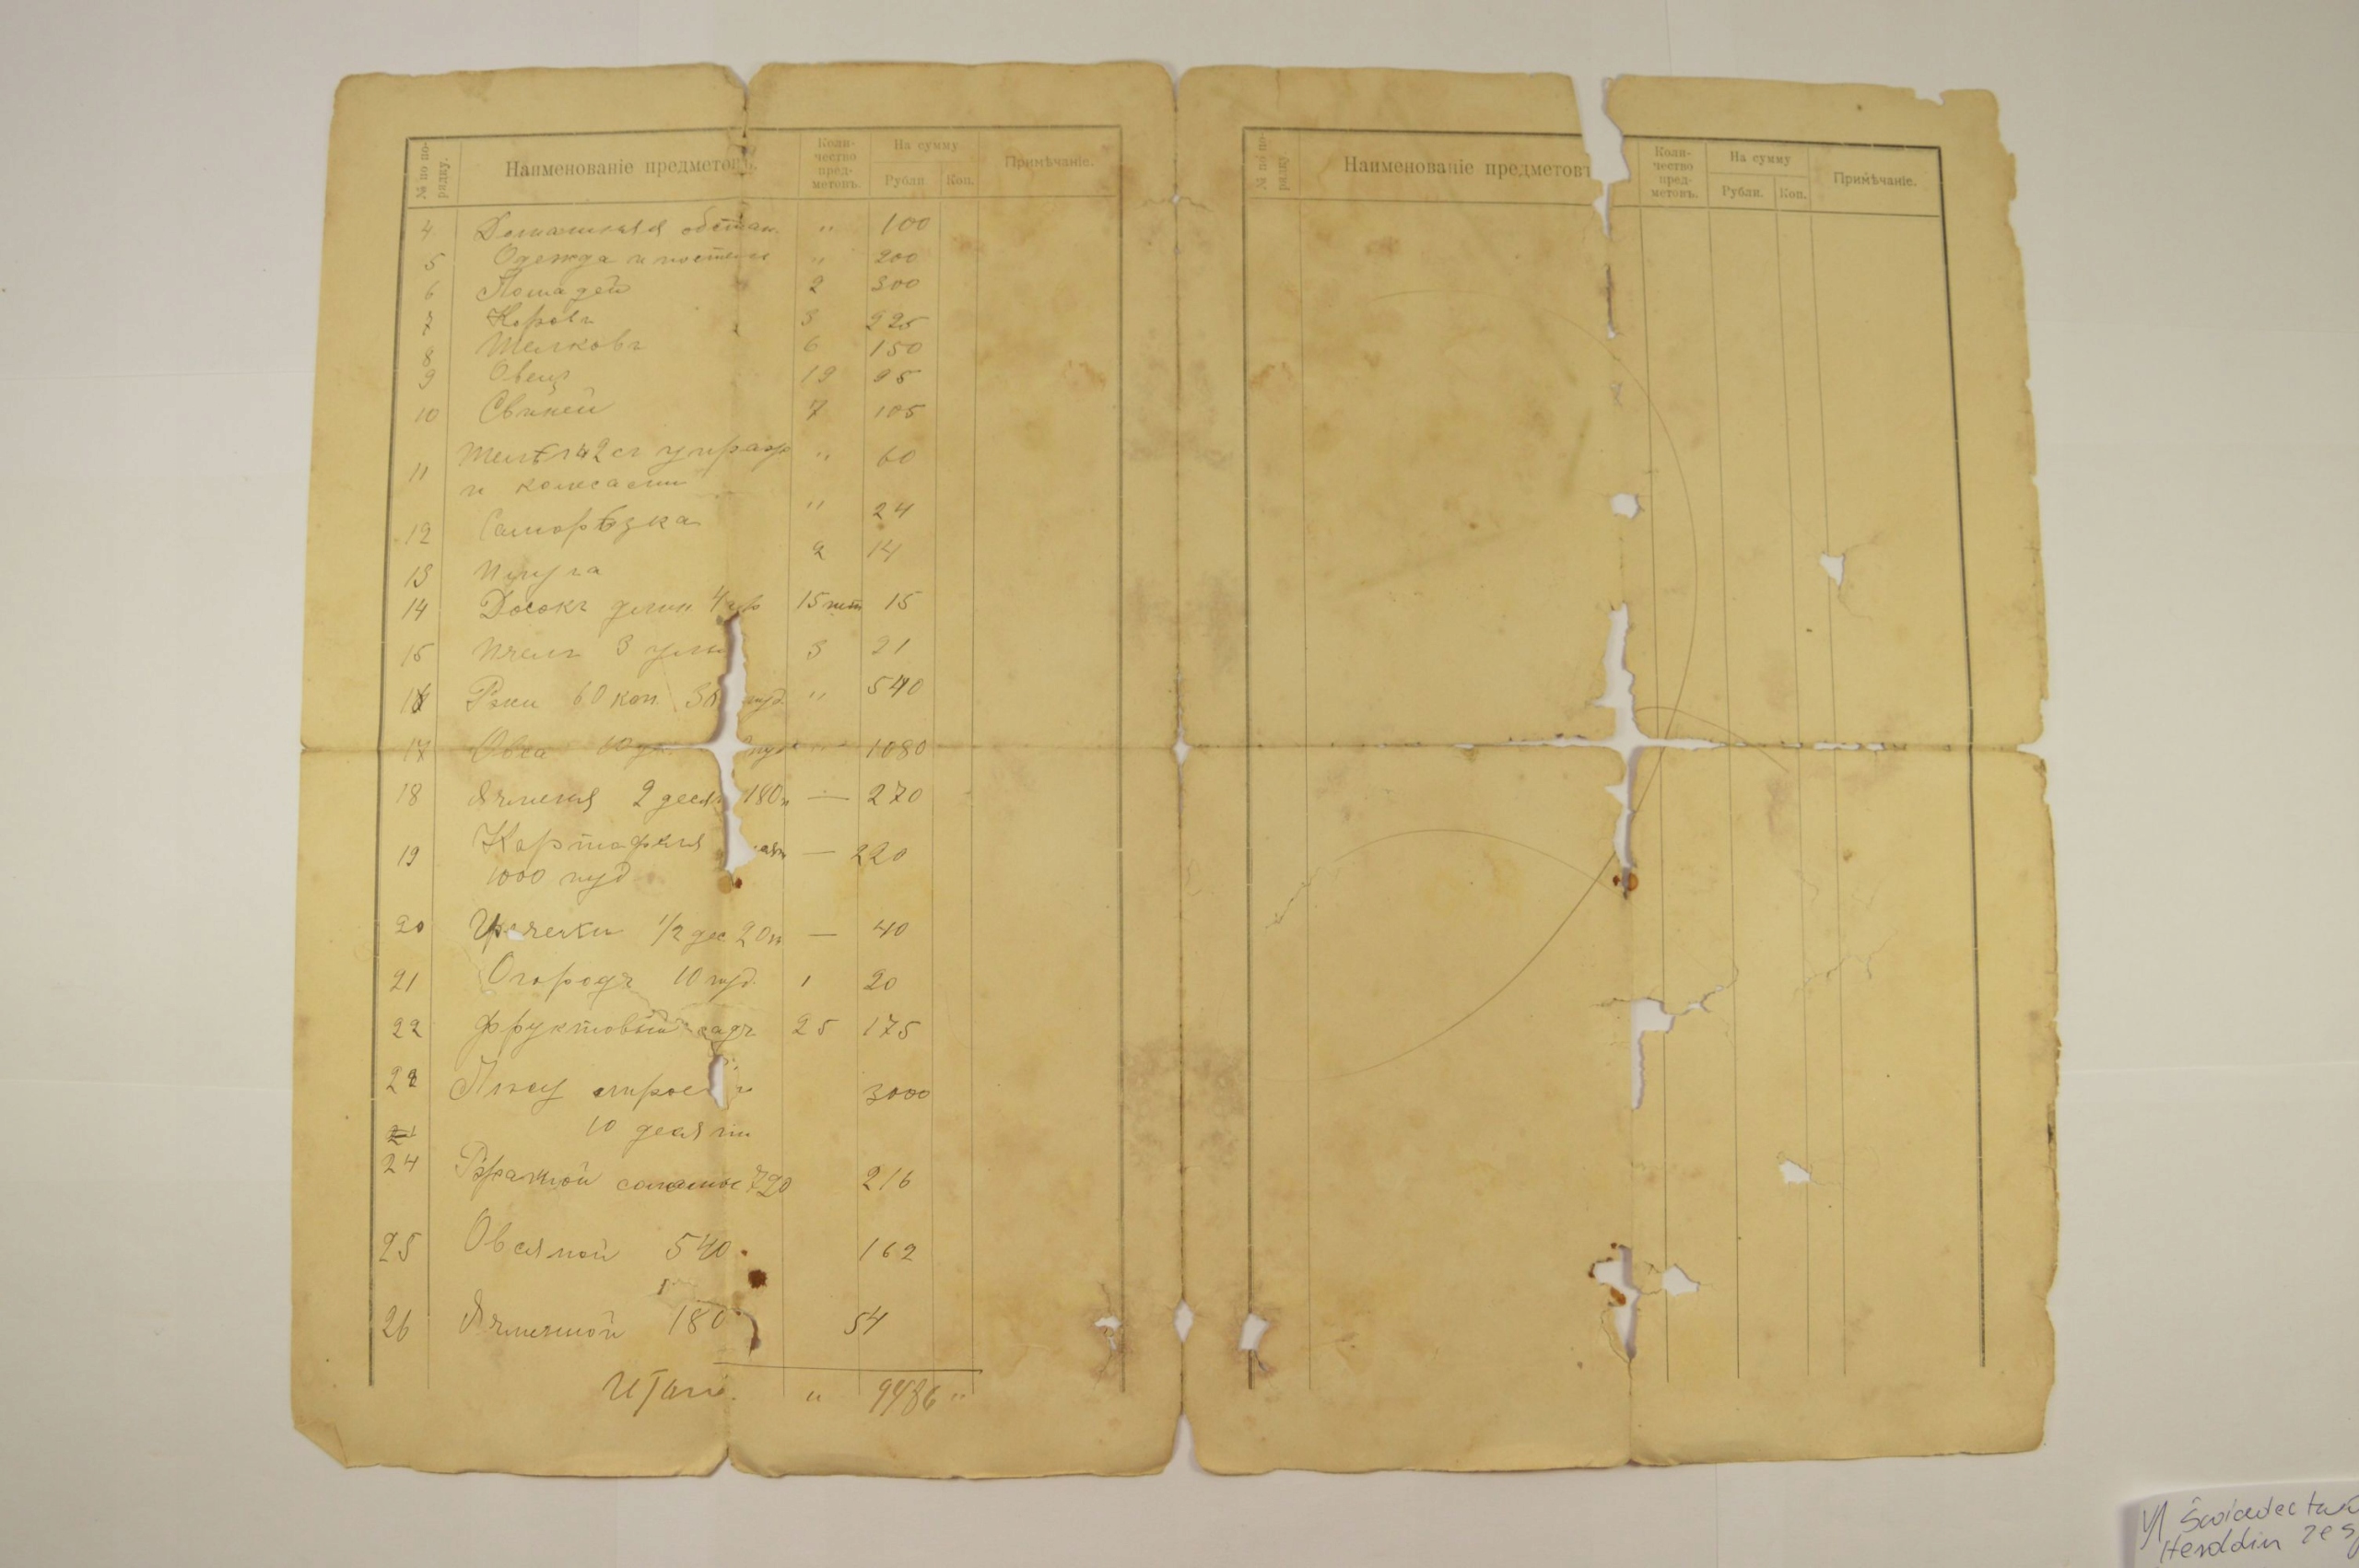 № по порядку. Наименованіе предметовъ. Количество предметовъ. На сумму Рубли. Коп. Примѣчаніе.
4 Домашняя обстан. " 100
5 Одежда и постель " 200
6 Лошадей 2 300
7 Коровъ 3 225
8 Телковъ 6 150
9 Овецъ 19 95
10 Свиней 7 105
11 Телѣги 2 съ упряж " 60
и колесами
12 Саморѣзка " 24
13 Плуга 2 14
14 Досокъ длин. 4 15 шт 15
15 Пчелъ 3 улья 3 21
16 Ржи 60 коп. пуд. " 540
17 Овса 10 пуд " 1080
18 Ячменя 2 десят 180п — 270
19 Картофеля — 220
1000 пуд
20 Гречки 1/2 дес 20п — 40
21 Огородъ 10 пуд. 1 20
22 Фруктовый садъ 25 175
23 Лѣсу 3000
10 десятин
24 Ржаной соломы 720 216
25 Овсяной 540 162
26 Ячменной 180 54
Итого. " 9486 "
№ по порядку. Наименованіе предметовъ Количество предметовъ. На сумму Рубли. Коп. Примѣчаніе.
Świadectwo